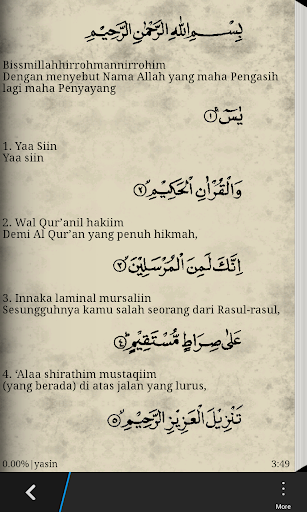 بِسْمِ اللهِ الرَّحْمٰنِ الرَّحِيْمِ
Bissmillahhirrohmannirrohim
Dengan menyebut Nama Allah yang maha Pengasih
lagi maha Penyayang
يٰسۤ ۝١
1. Yaa Siin
Yaa siin
وَالْقُرْاٰنِ الْحَكِيْمِ ۝٢
2. Wal Qur'anil hakiim
Demi Al Qur'an yang penuh hikmah,
اِنَّكَ لَمِنَ الْمُرْسَلِيْنَ ۝٣
3. Innaka laminal mursaliin
Sesungguhnya kamu salah seorang dari Rasul-rasul,
عَلٰى صِرَاطٍ مُّسْتَقِيْمٍ ۝٤
4. 'Alaa shirathim mustaqiim
(yang berada) di atas jalan yang lurus,
تَنْزِيْلَ الْعَزِيْزِ الرَّحِيْمِ ۝٥
0.00%|yasin 3:49
More